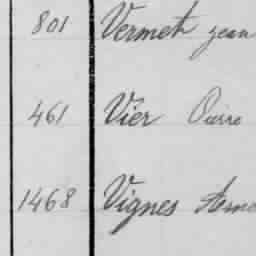 801 Vermet jean
461 Vier Pierre
1468 Vignes